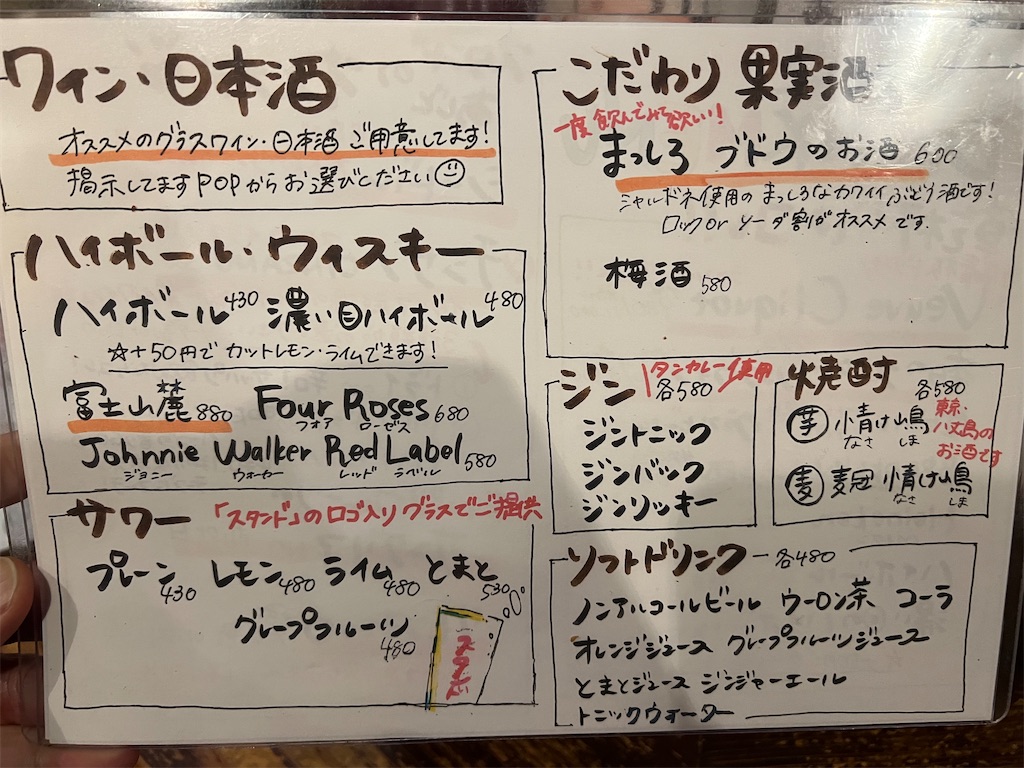 ワイン・日本酒
オススメのグラスワイン・日本酒 ご用意してます!
掲示してますPOPからお選びください
ハイボール・ウィスキー
ハイボール430 濃い目ハイボール480
☆+50円でカットレモン・ライムできます!
富士山麓880 Four Roses680
フォア ローゼス
Johnnie Walker Red Label580
ジョニー ウォーカー レッド ラベル
サワー 「スタンド」のロゴ入りグラスでご提供
プレーン430 レモン480 ライム480 とまと530
グレープフルーツ480
こだわり 果実酒
一度飲んでみて欲しい!
まっしろ ブドウのお酒 600
シャルドネ使用の まっしろなカワイイ ぶどう酒です!
ロック or ソーダ割がオススメです.
梅酒580
ジン タンカレー使用
各580
ジントニック
ジンバック
ジンリッキー
焼酎 各580
芋 情け嶋
なさ しま
東京・八丈島のお酒です
麦 麦冠 情け嶋
なさ しま
ソフトドリンク 各480
ノンアルコールビール ウーロン茶 コーラ
オレンジジュース グレープフルーツジュース
とまとジュース ジンジャーエール
トニックウォーター